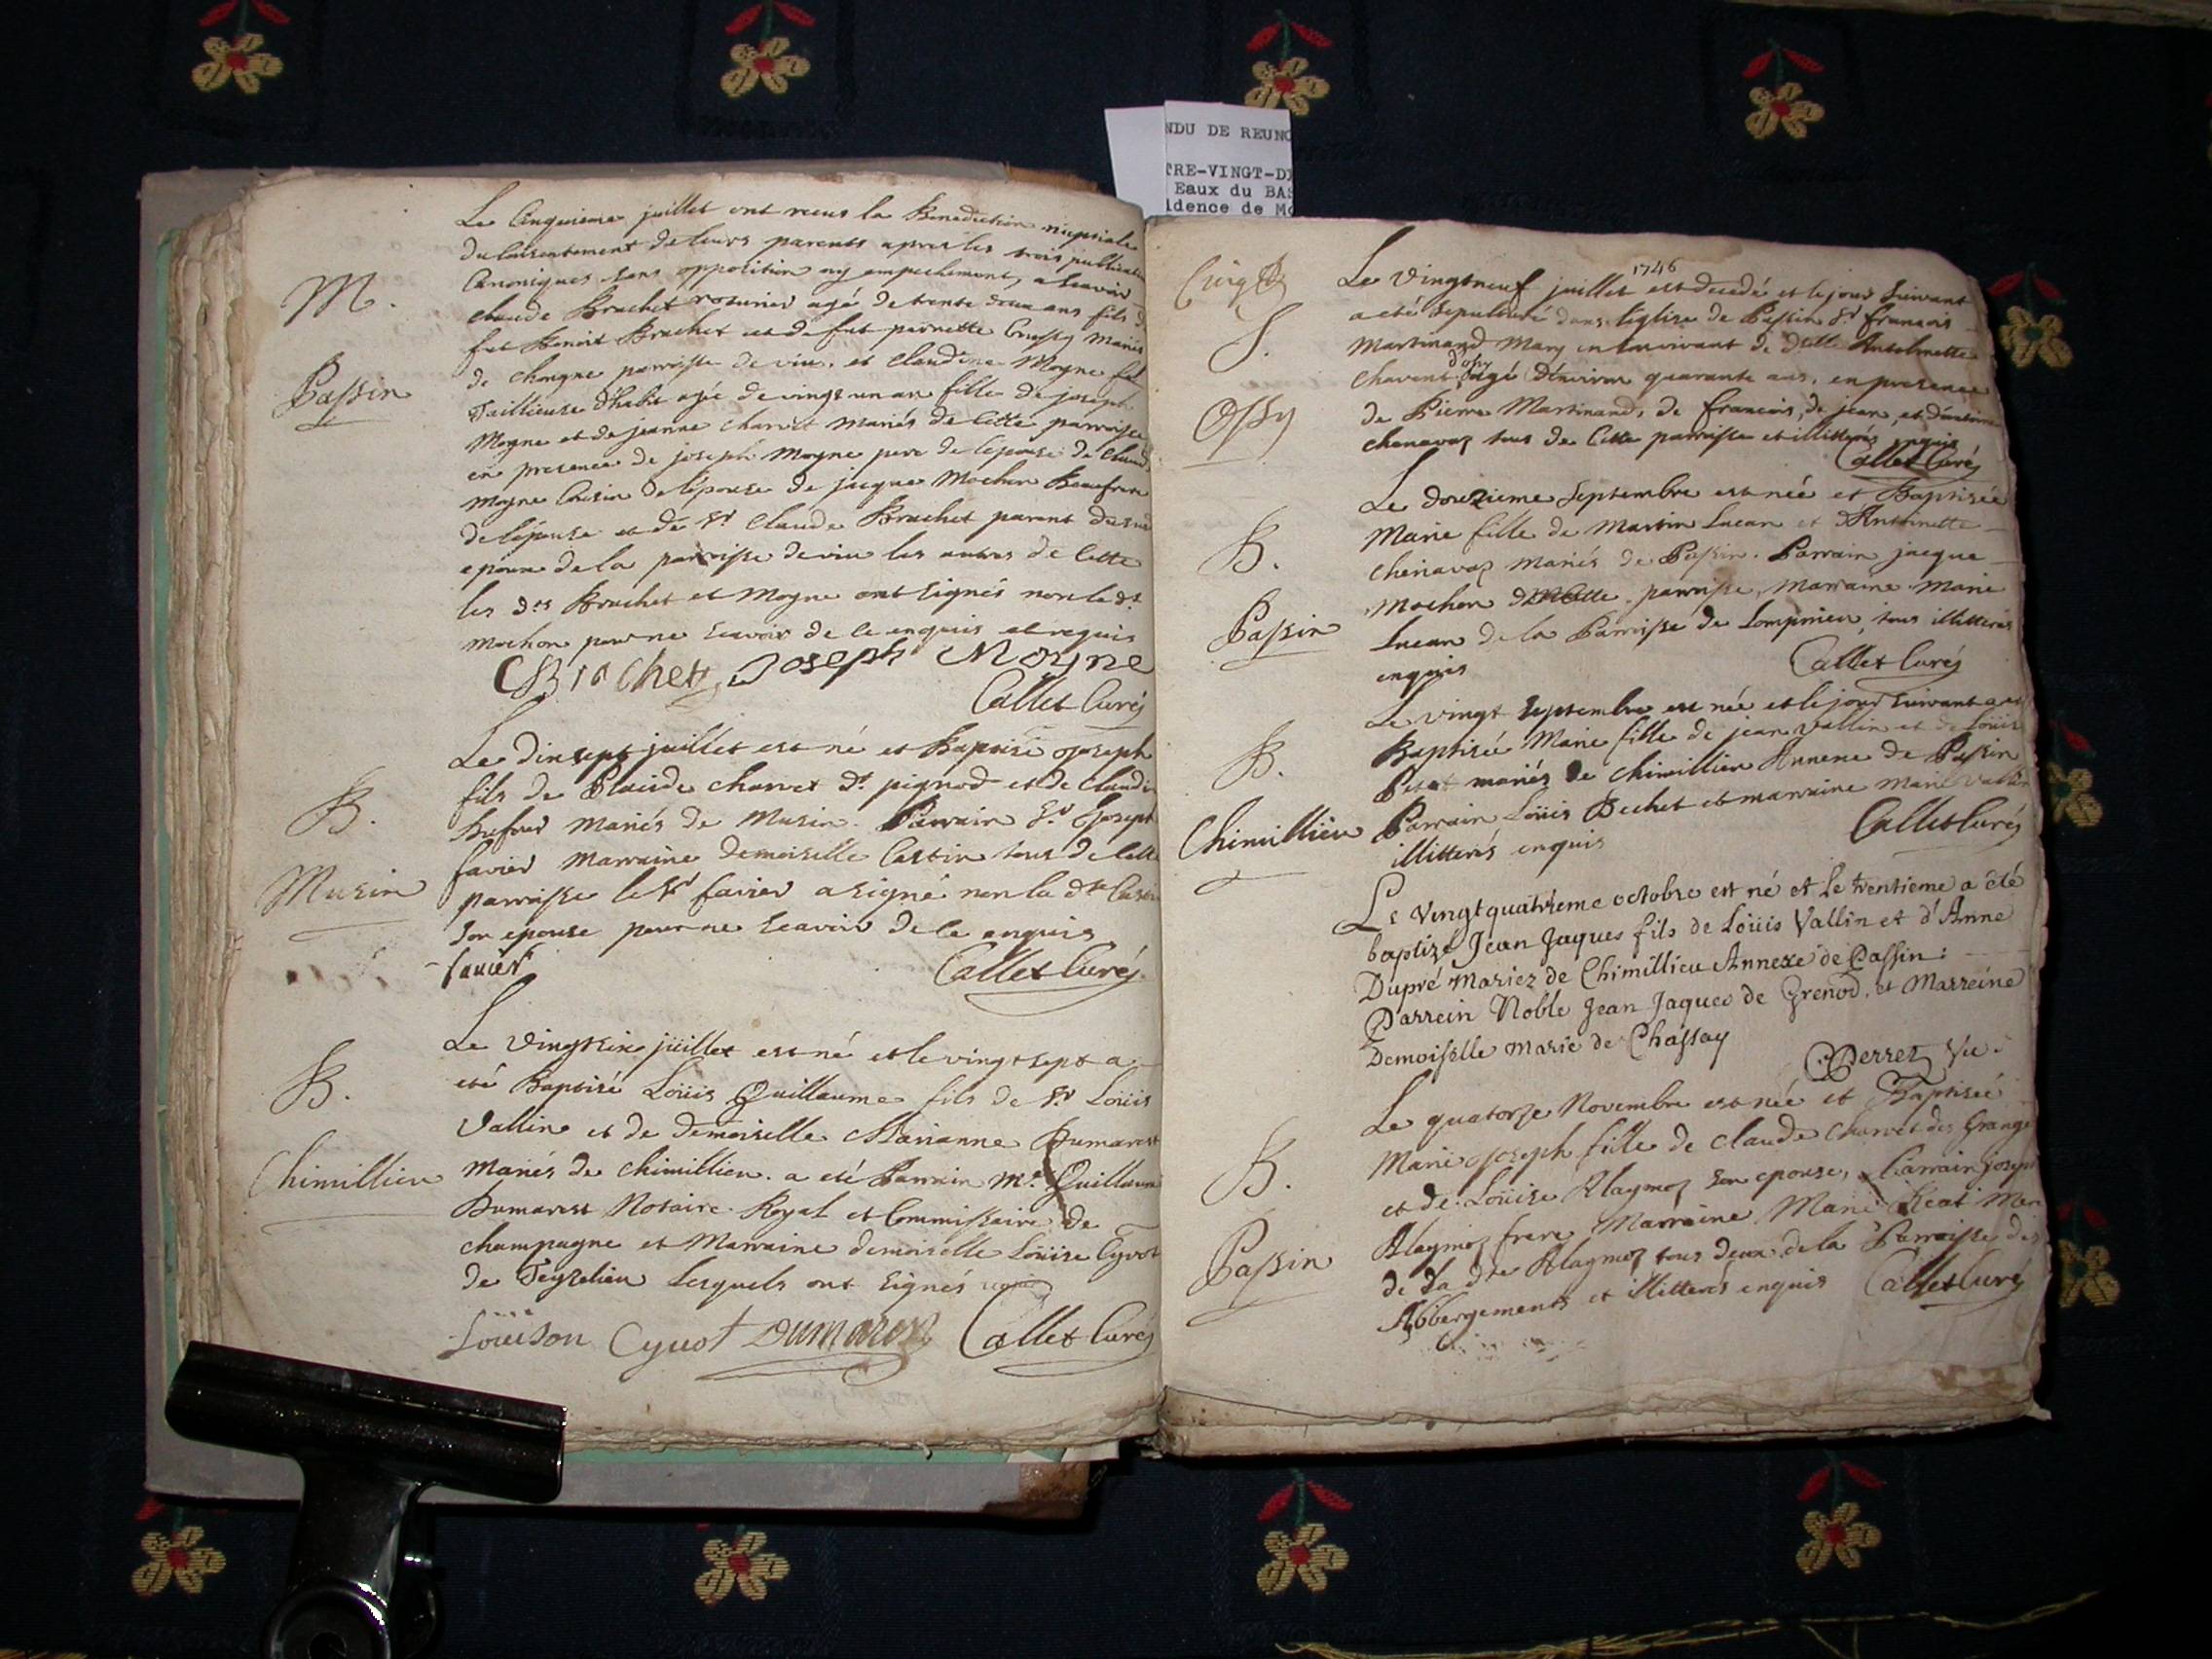 NDU DE REUNO
TRE-VINGT-DI
Eaux du BAS
idence de Mo
Le Cinquieme juillet ont receus la Benediction nuptiale
du Consentement de leurs parents apres les trois publication
Canoniques sans opposition ny empechement, a scavoir
M.
claude Brachet roturier agé de trente deux ans fils d
fut Benoit Brachet et de fut pernette mariés
de chongne parroisse de viu, et claudine Moyne
Passin
Taillieuse d'habit agée de vingt un an fille de joseph
Moyne et de jeanne charvet mariés de Cette parroisse
en presence de joseph Moyne pere de l'epouse de claud
Moyne Cousin de l'épouse de jacque Mochon Beaufrere
de l'épouse et de Sr Claude Brachet parent dusud
epoux de la parroisse de viu les autres de Cette
les dts Brachet et Moyne ont signés non le dt
Mochon pour ne scavoir de ce enquis et requis
CBrachet, Joseph Moyne
Callet Curé
Le dixsept juillet est né et Baptisé joseph
fils de Placide charvet dt pignod et de Claudi
B.
Dufour mariés de Musin. Parrain Sr Joseph
favier Marraine demoiselle Castin tous de Cette
Musin
parroisse le Sr favier a signé non la dte Castin
son epouse pour ne scavoir de ce enquis
favier
Callet Curé
Le vingtsix juillet est né et le vingtsept a
B.
eté Baptisé Loüis Guillaume fils de Sr Loüis
Vallin et de Demoiselle Marianne Dumarest
Chimillieu
mariés de chimillieu. a eté Parrain Me Guillaum
Dumarest Notaire Royal et Commissaire de
champagne et Marraine demoiselle Loüise Cyvot
de Teyselieu Lesquels ont signés
Loüison Cyuot Dumarest
Callet Curé
1746
Le vingtneuf juillet est decedé et le jour suivant
S.
a eté sepulturé dans l'église de Passin Sr françois
Martinand Mary en survivant de dlle Antelmette
chavent d'ossy agé d'environ quarante ans, en presence
Ossy
de Pierre Martinand, de françois, de jean, et d'antoine
chenavaz tous de Cette parroisse et illitterés enquis
Callet Curé
Le douzieme septembre est née et Baptisée
B.
Marie fille de Martin Lucan et d'Antoinette
chenavaz mariés de Passin. Parrain jacque
Mochon de Cette parroisse, Marraine Marie
Passin
Lucan de la Parroisse de Lompnieu, tous illitterés
enquis
Callet Curé
Le vingt septembre est née et le jour suivant a eté
B.
Baptisée Marie fille de jean vallin et de Loüise
mariés de chimillieu Annexe de Passin
Chimillieu
Parrain Loüis Bechet et marraine Marie Vallin
illitterés enquis
Callet Curé
Le vingtquatrième octobre est né et le trentieme a été
baptizé Jean Jaques fils de Loüis Vallin et d'Anne
Dupré Mariez de Chimillieu Annexe de Passin:
Parrein Noble Jean Jaques de Grenod, et Marreine
Demoiselle Marie de Chassay
Perret Vic:
Le quatorze Novembre est née et Baptisée
B.
Marie joseph fille de claude charvet des Grange
et de Loüise Alaymoz son epouse, Parrain joseph
Alaymoz frere Marraine Marie Beat Mere
Passin
de la dte Alaymoz tous deux de la Parroisse des
Abbergements et illitterés enquis
Callet Curé